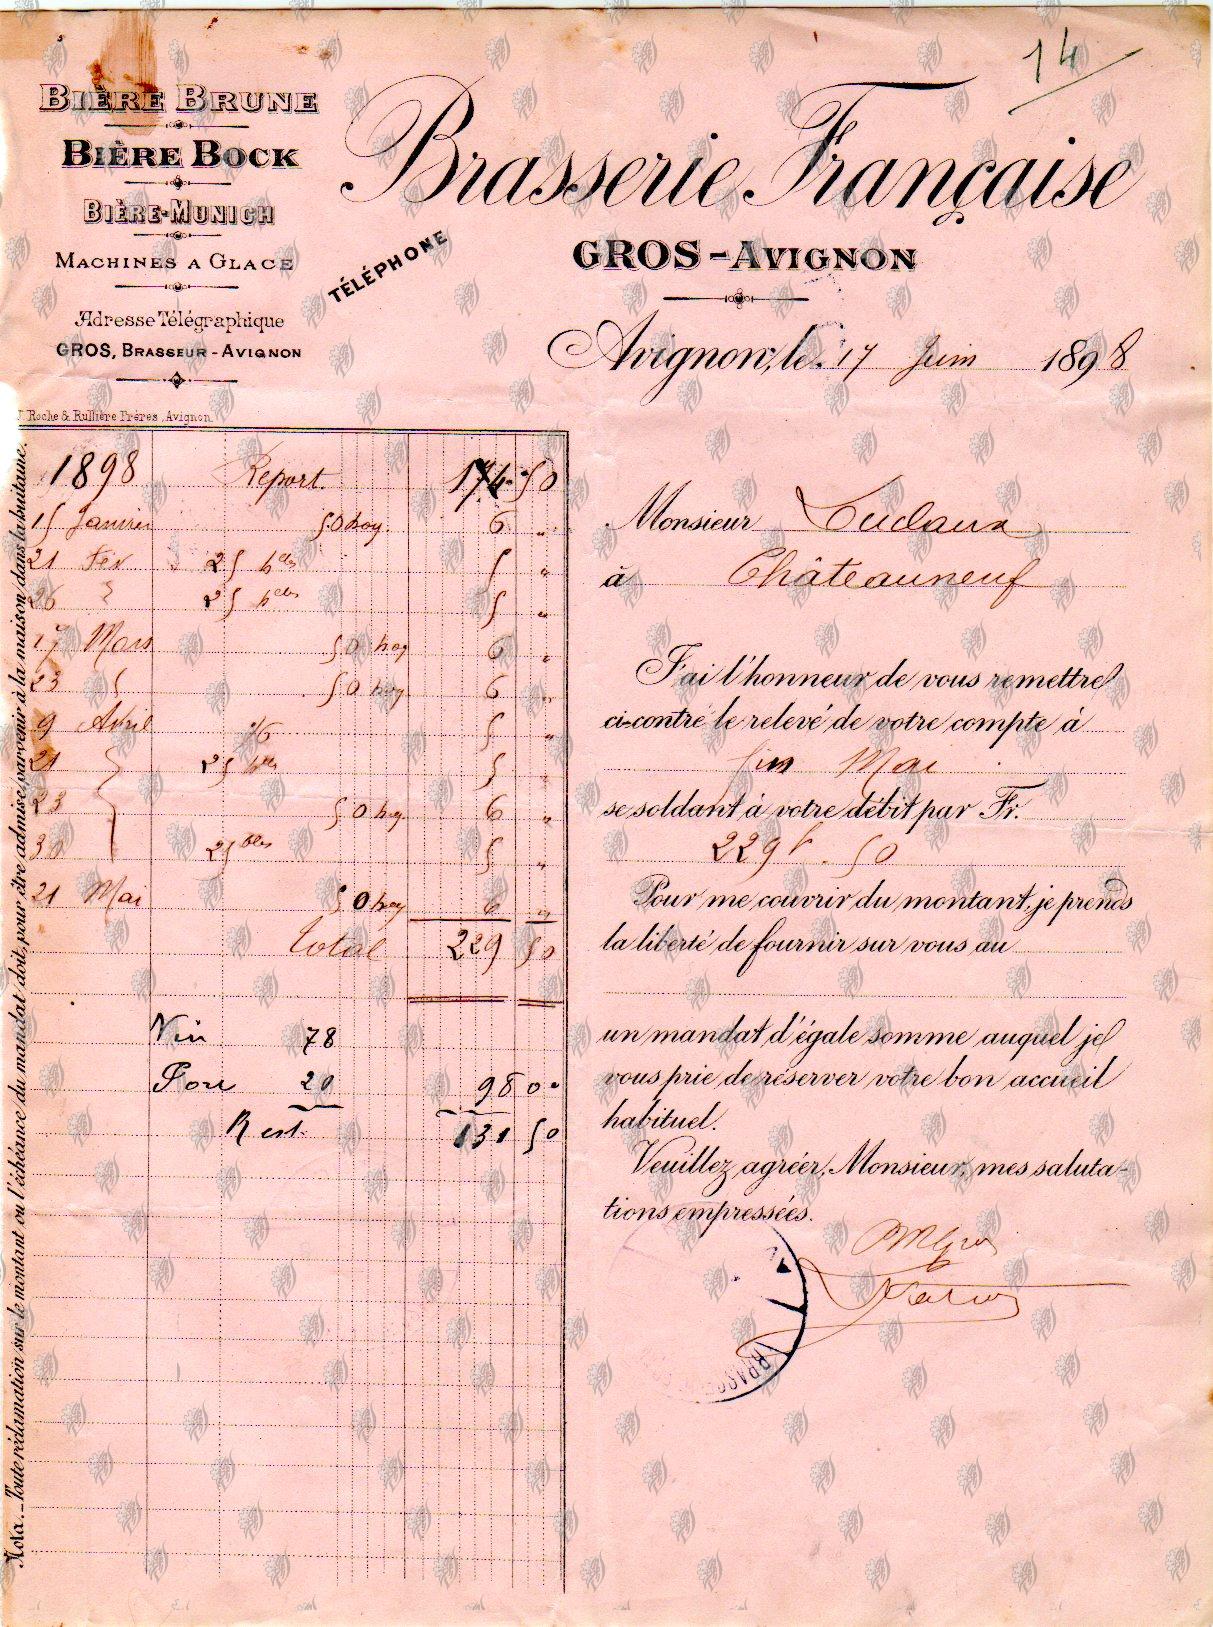 14
BIÈRE BRUNE
BIÈRE BOCK
BIÈRE-MUNICH
MACHINES A GLACE
Adresse Télégraphique
GROS, BRASSEUR-AVIGNON
J. Roche & Rullière Frères, Avignon.
TÉLÉPHONE
Brasserie Française
GROS-AVIGNON
Avignon, le 17 Juin 1898
1898 Report. 174 50
15 Janvier 50 hoy. 6 "
21 Fév 25 bles 5 "
26 25 bles 5 "
17 Mars 50 hoy 6 "
23 50 hoy 6 "
9 Avril 5 "
21 25 bles 5 "
23 50 hoy 6 "
30 25 bles 5 "
21 Mai 50 hoy 6 "
Total 229 50
Vin 78
20 98 00
Rest. 131 50
Monsieur
à Châteauneuf
J'ai l'honneur de vous remettre
ci-contre le relevé de votre compte à
fin Mai
se soldant à votre débit par Fr.
229 f. 50
Pour me couvrir du montant, je prends
la liberté de fournir sur vous au
un mandat d'égale somme auquel je
vous prie de réserver votre bon accueil
habituel.
Veuillez agréer, Monsieur, mes saluta-
tions empressées.
Nota._Toute réclamation sur le montant ou l'échéance du mandat doit, pour être admise, parvenir à la maison dans la huitaine.